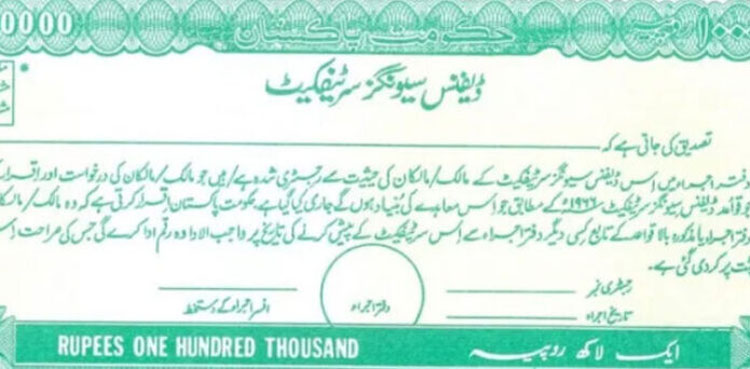 0000 حکومت پاکستان ۱۰۰ روپیہ
ڈیفنس سیونگز سرٹیفکیٹ
تصدیق کی جاتی ہے کہ
دفتر اجراء میں اس ڈیفنس سیونگز سرٹیفکیٹ کے مالک/مالکان کی حیثیت سے رجسٹری شدہ ہے/ہیں جو مالک/مالکان کی درخواست اور اقرار
قواعد ڈیفنس سیونگز سرٹیفکیٹ ۱۹۶۶ء کے مطابق جو اس معاہدے کی بنیاد ہوں گے جاری کیا گیا ہے۔ حکومت پاکستان اقرار کرتی ہے کہ وہ مالک/
دفتر اجراء یا مذکورہ بالا قواعد کے تابع کسی دیگر دفتر اجراء سے اس سرٹیفکیٹ کے پیش کرنے کی تاریخ پر واجب الادا وہ رقم ادا کرے گی جس کی صراحت اس
پر کر دی گئی ہے۔
رجسٹری نمبر
تاریخ اجراء
دفتر اجراء
افسر اجراء کے دستخط
RUPEES ONE HUNDRED THOUSAND ایک لاکھ روپیہ